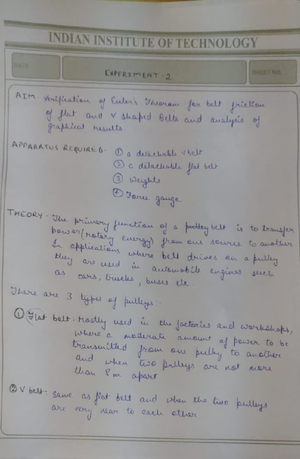 INDIAN INSTITUTE OF TECHNOLOGY
DATE
SHEET NO.
EXPERIMENT - 2
AIM - Verification of Euler's Theorem for belt friction
of flat and V shaped Belts and analysis of
graphical results
APPARATUS REQUIRED -
① a detachable v belt
② a detachable flat belt
③ weights
④ Force gauge
THEORY - The primary function of a pulley belt is to transfer
power (rotary energy) from one source to another
In applications where belt drives on a pulley
they are used in automobile engines such
as cars, trucks, buses etc.
There are 3 types of pulleys -
① Flat belt - Mostly used in the factories and workshops,
where a moderate amount of power to be
transmitted from one pulley to another
and when two pulleys are not more
than 8m apart
② V belt - Same as flat belt and when the two pulleys
are very near to each other